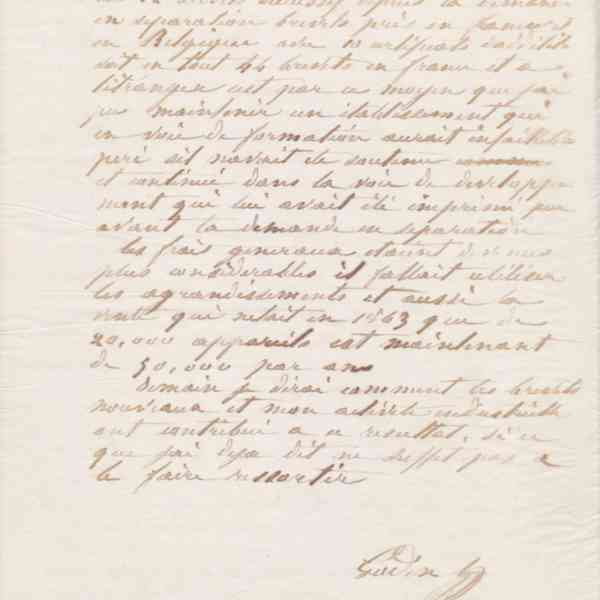 depuis la demande
en separation brevets pris en france et
en Belgique avec 10 certificats
soit en tout 44 brevets en france et a
l'étranger cest par ce moyen que jai
pu maintenir un établissement qui
en voie de formation aurait
peri sil navait été soutenu
et continué dans la voie de developpe
ment qui lui avait été imprimé par
avant la demande en separation
les frais generaux étant devenus
plus considerables il fallait utiliser
les agrandissements et aussi la
vente qui netait en 1863 que de
20,000 appareils est maintenant
de 50,000 par an
Demain je dirai comment les brevets
nouveaux et mon activité industrielle
ont contribué a ce resultat, si ce
que jai deja dit ne suffit pas a
le faire ressortir
Godin